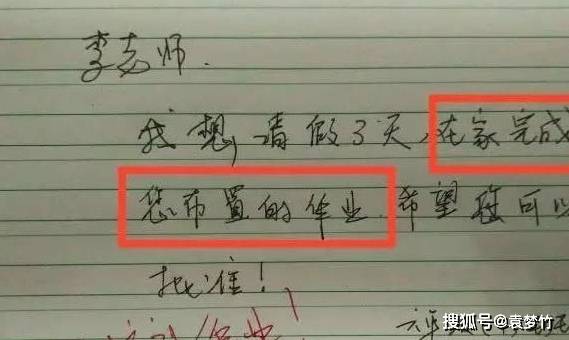 李老师.
我想请假3天,在家完成
您布置的作业.希望您可以
批准!
搜狐号@袁梦竹